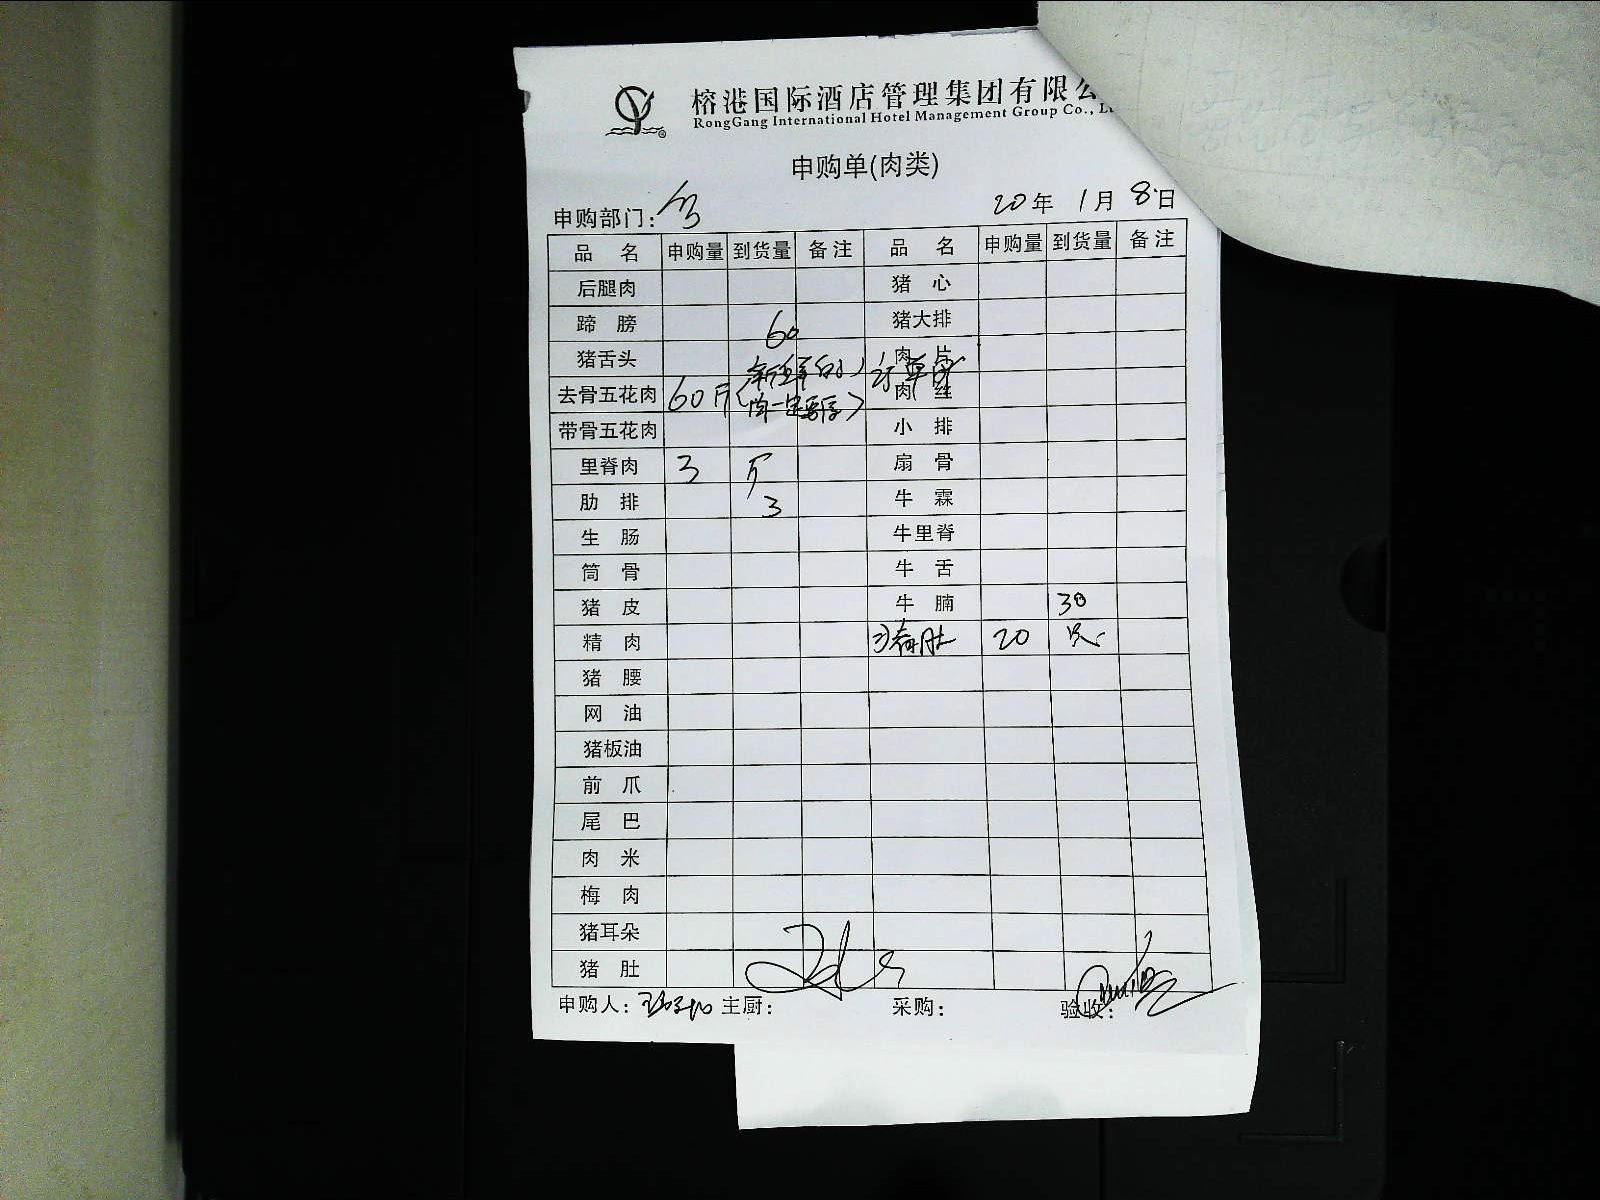 榕港国际酒店管理集团有限公
RongGang International Hotel Management Group Co., L
申购单(肉类)
申购部门: 20年 1月 8日
品 名 申购量 到货量 备注 品 名 申购量 到货量 备注
后腿肉 猪 心
蹄 膀 60 猪大排
猪舌头 肉 片
去骨五花肉 60斤 肉 丝
带骨五花肉 小 排
里脊肉 3 斤 扇 骨
肋 排 3 牛 霖
生 肠 牛里脊
筒 骨 牛 舌
猪 皮 牛 腩 30
精 肉 猪肚 20 只
猪 腰
网 油
猪板油
前 爪
尾 巴
肉 米
梅 肉
猪耳朵
猪 肚
申购人: 主厨: 采购: 验收: